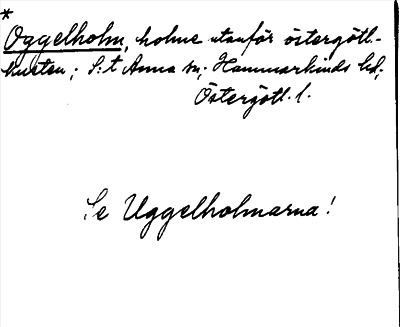 *
Oggelholm, holme utanför östergötl.-
kusten; S:t Anna sn; Hammarkinds hd;
Östergötl. l.
Se Uggelholmarna!